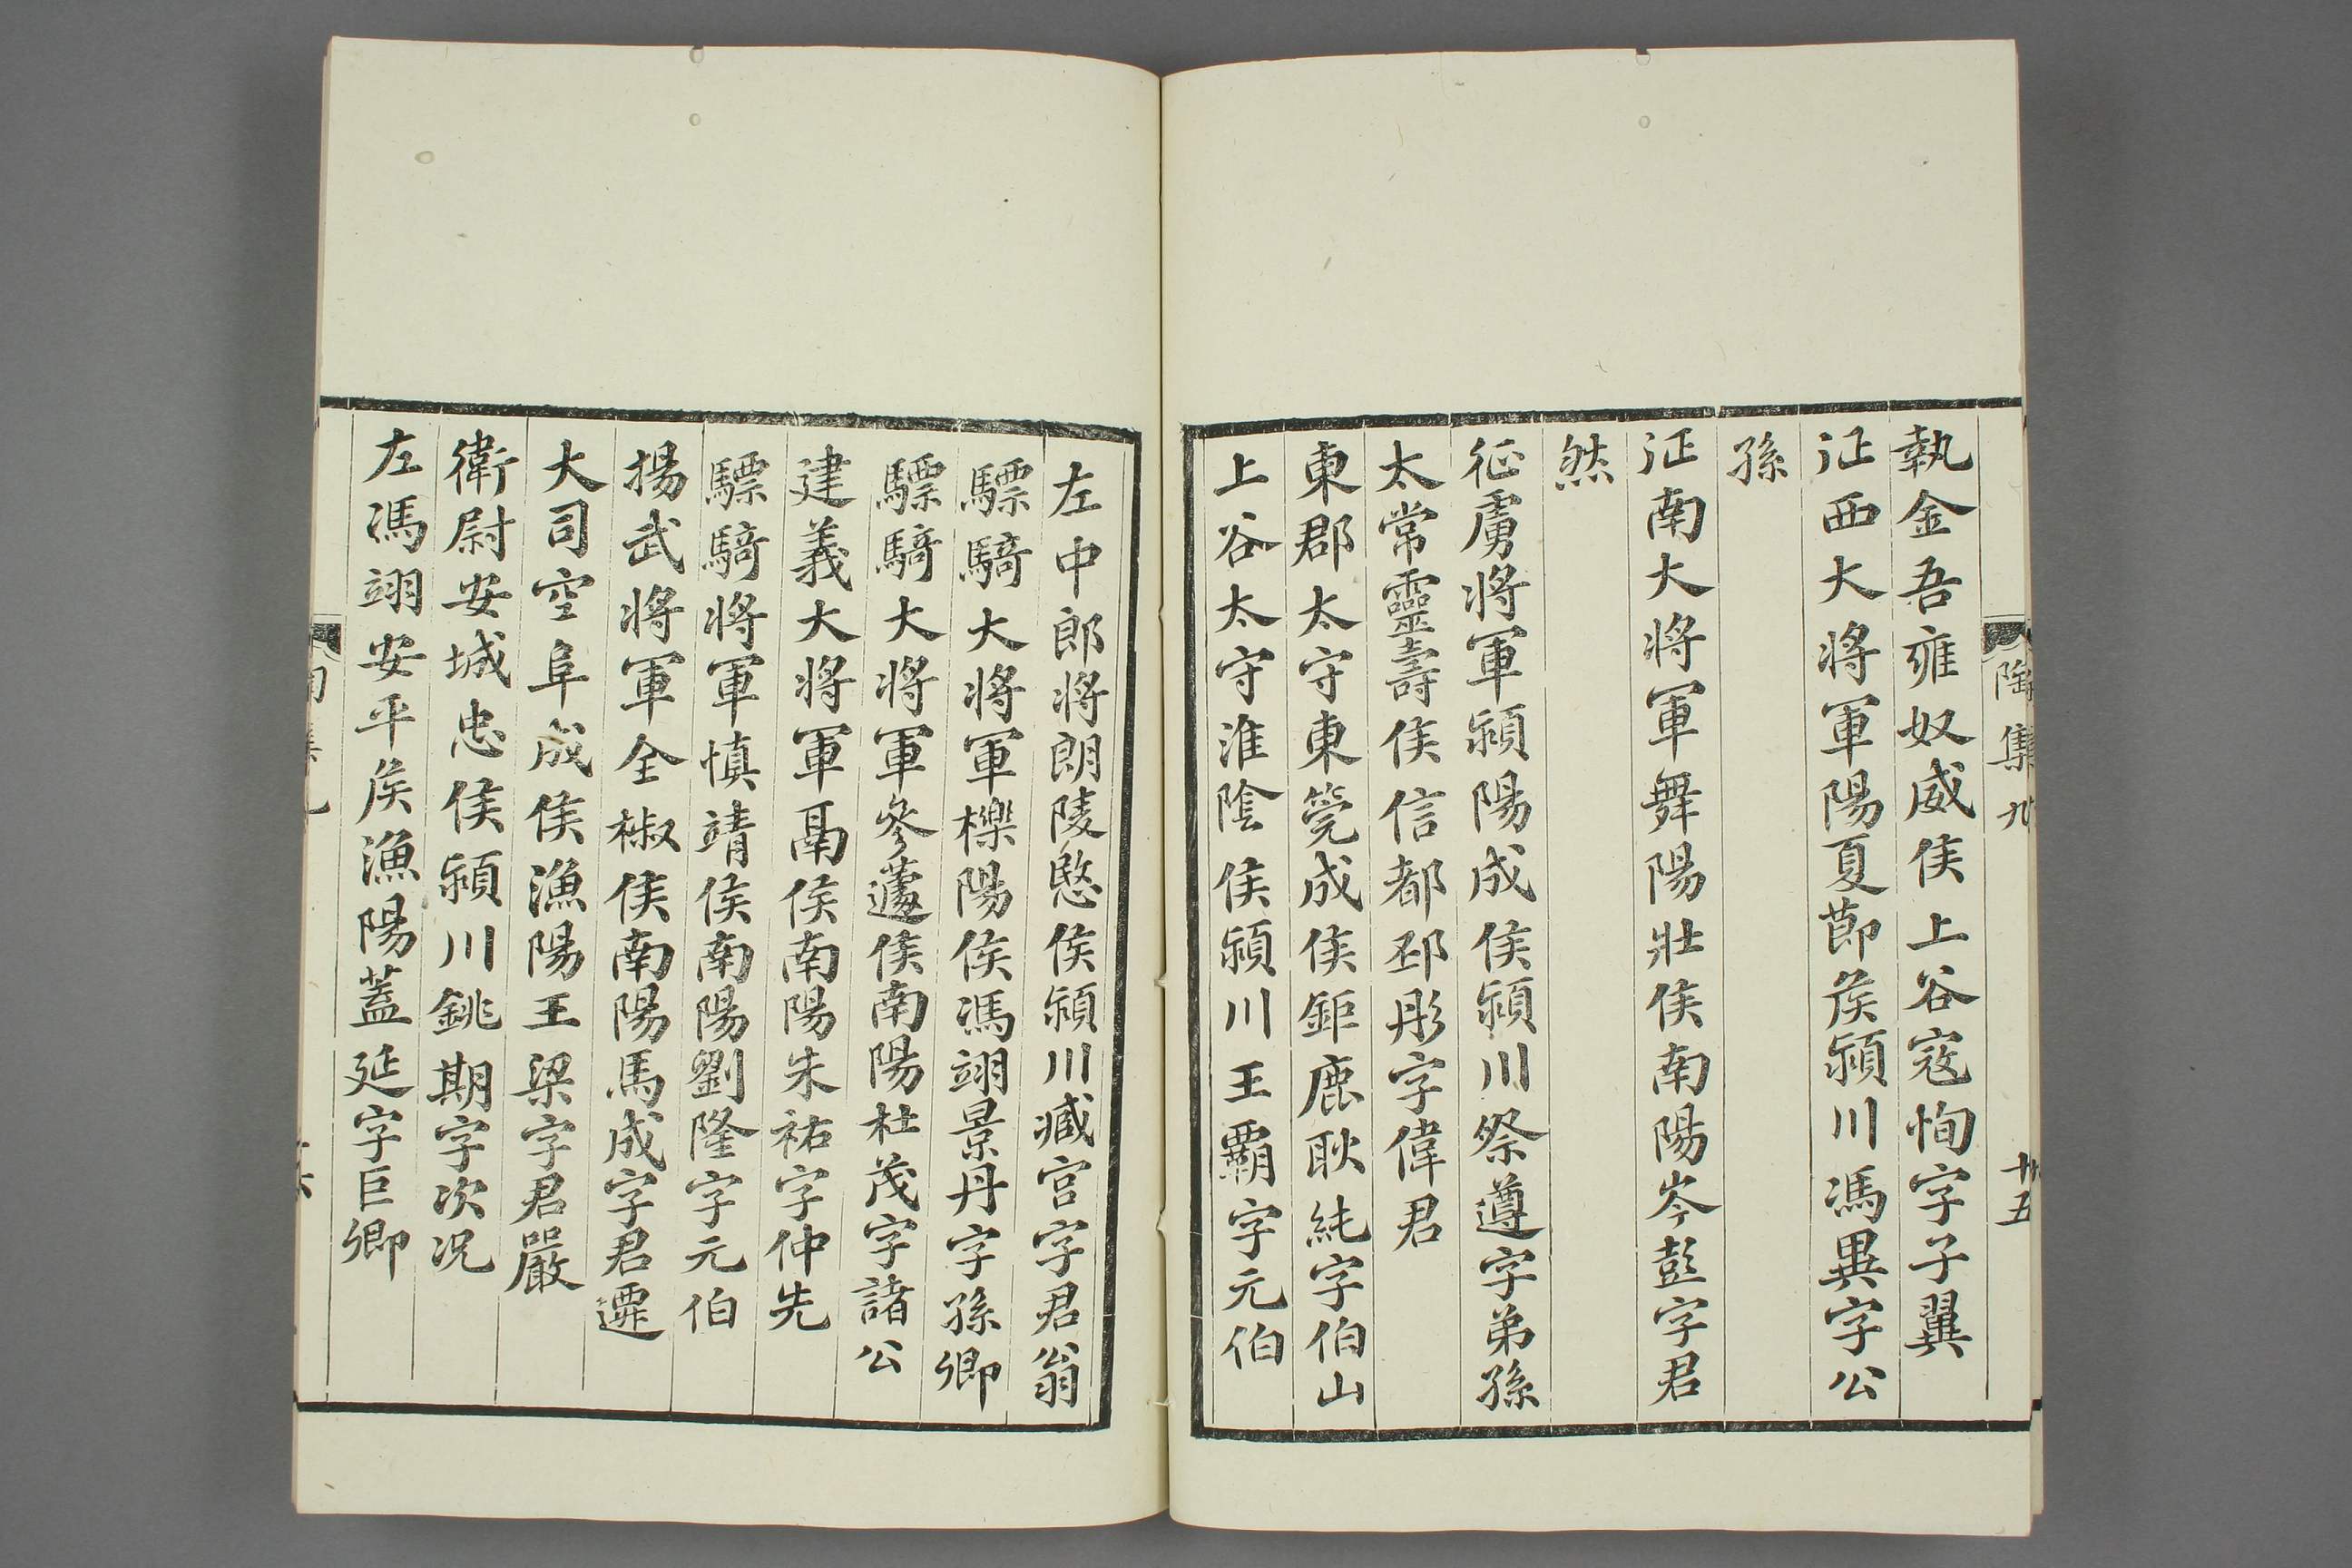 陶集九
十五
執金吾雍奴威侯上谷寇恂字子翼
征西大將軍陽夏節侯潁川馮異字公
孫
征南大將軍舞陽壯侯南陽岑彭字君
然
征虜將軍潁陽成侯潁川祭遵字弟孫
太常靈壽侯信都邳彤字偉君
東郡太守東筦成侯鉅鹿耿純字伯山
上谷太守淮陰侯潁川王霸字元伯
左中郎將朗陵愍侯潁川臧宮字君翁
驃騎大將軍櫟陽侯馮翊景丹字孫卿
驃騎大將軍參蘧侯南陽杜茂字諸公
建義大將軍鬲侯南陽朱祐字仲先
驃騎將軍慎靖侯南陽劉隆字元伯
揚武將軍全椒侯南陽馬成字君遷
大司空阜成侯漁陽王梁字君嚴
衛尉安城忠侯潁川銚期字次况
左馮翊安平侯漁陽蓋延字巨卿